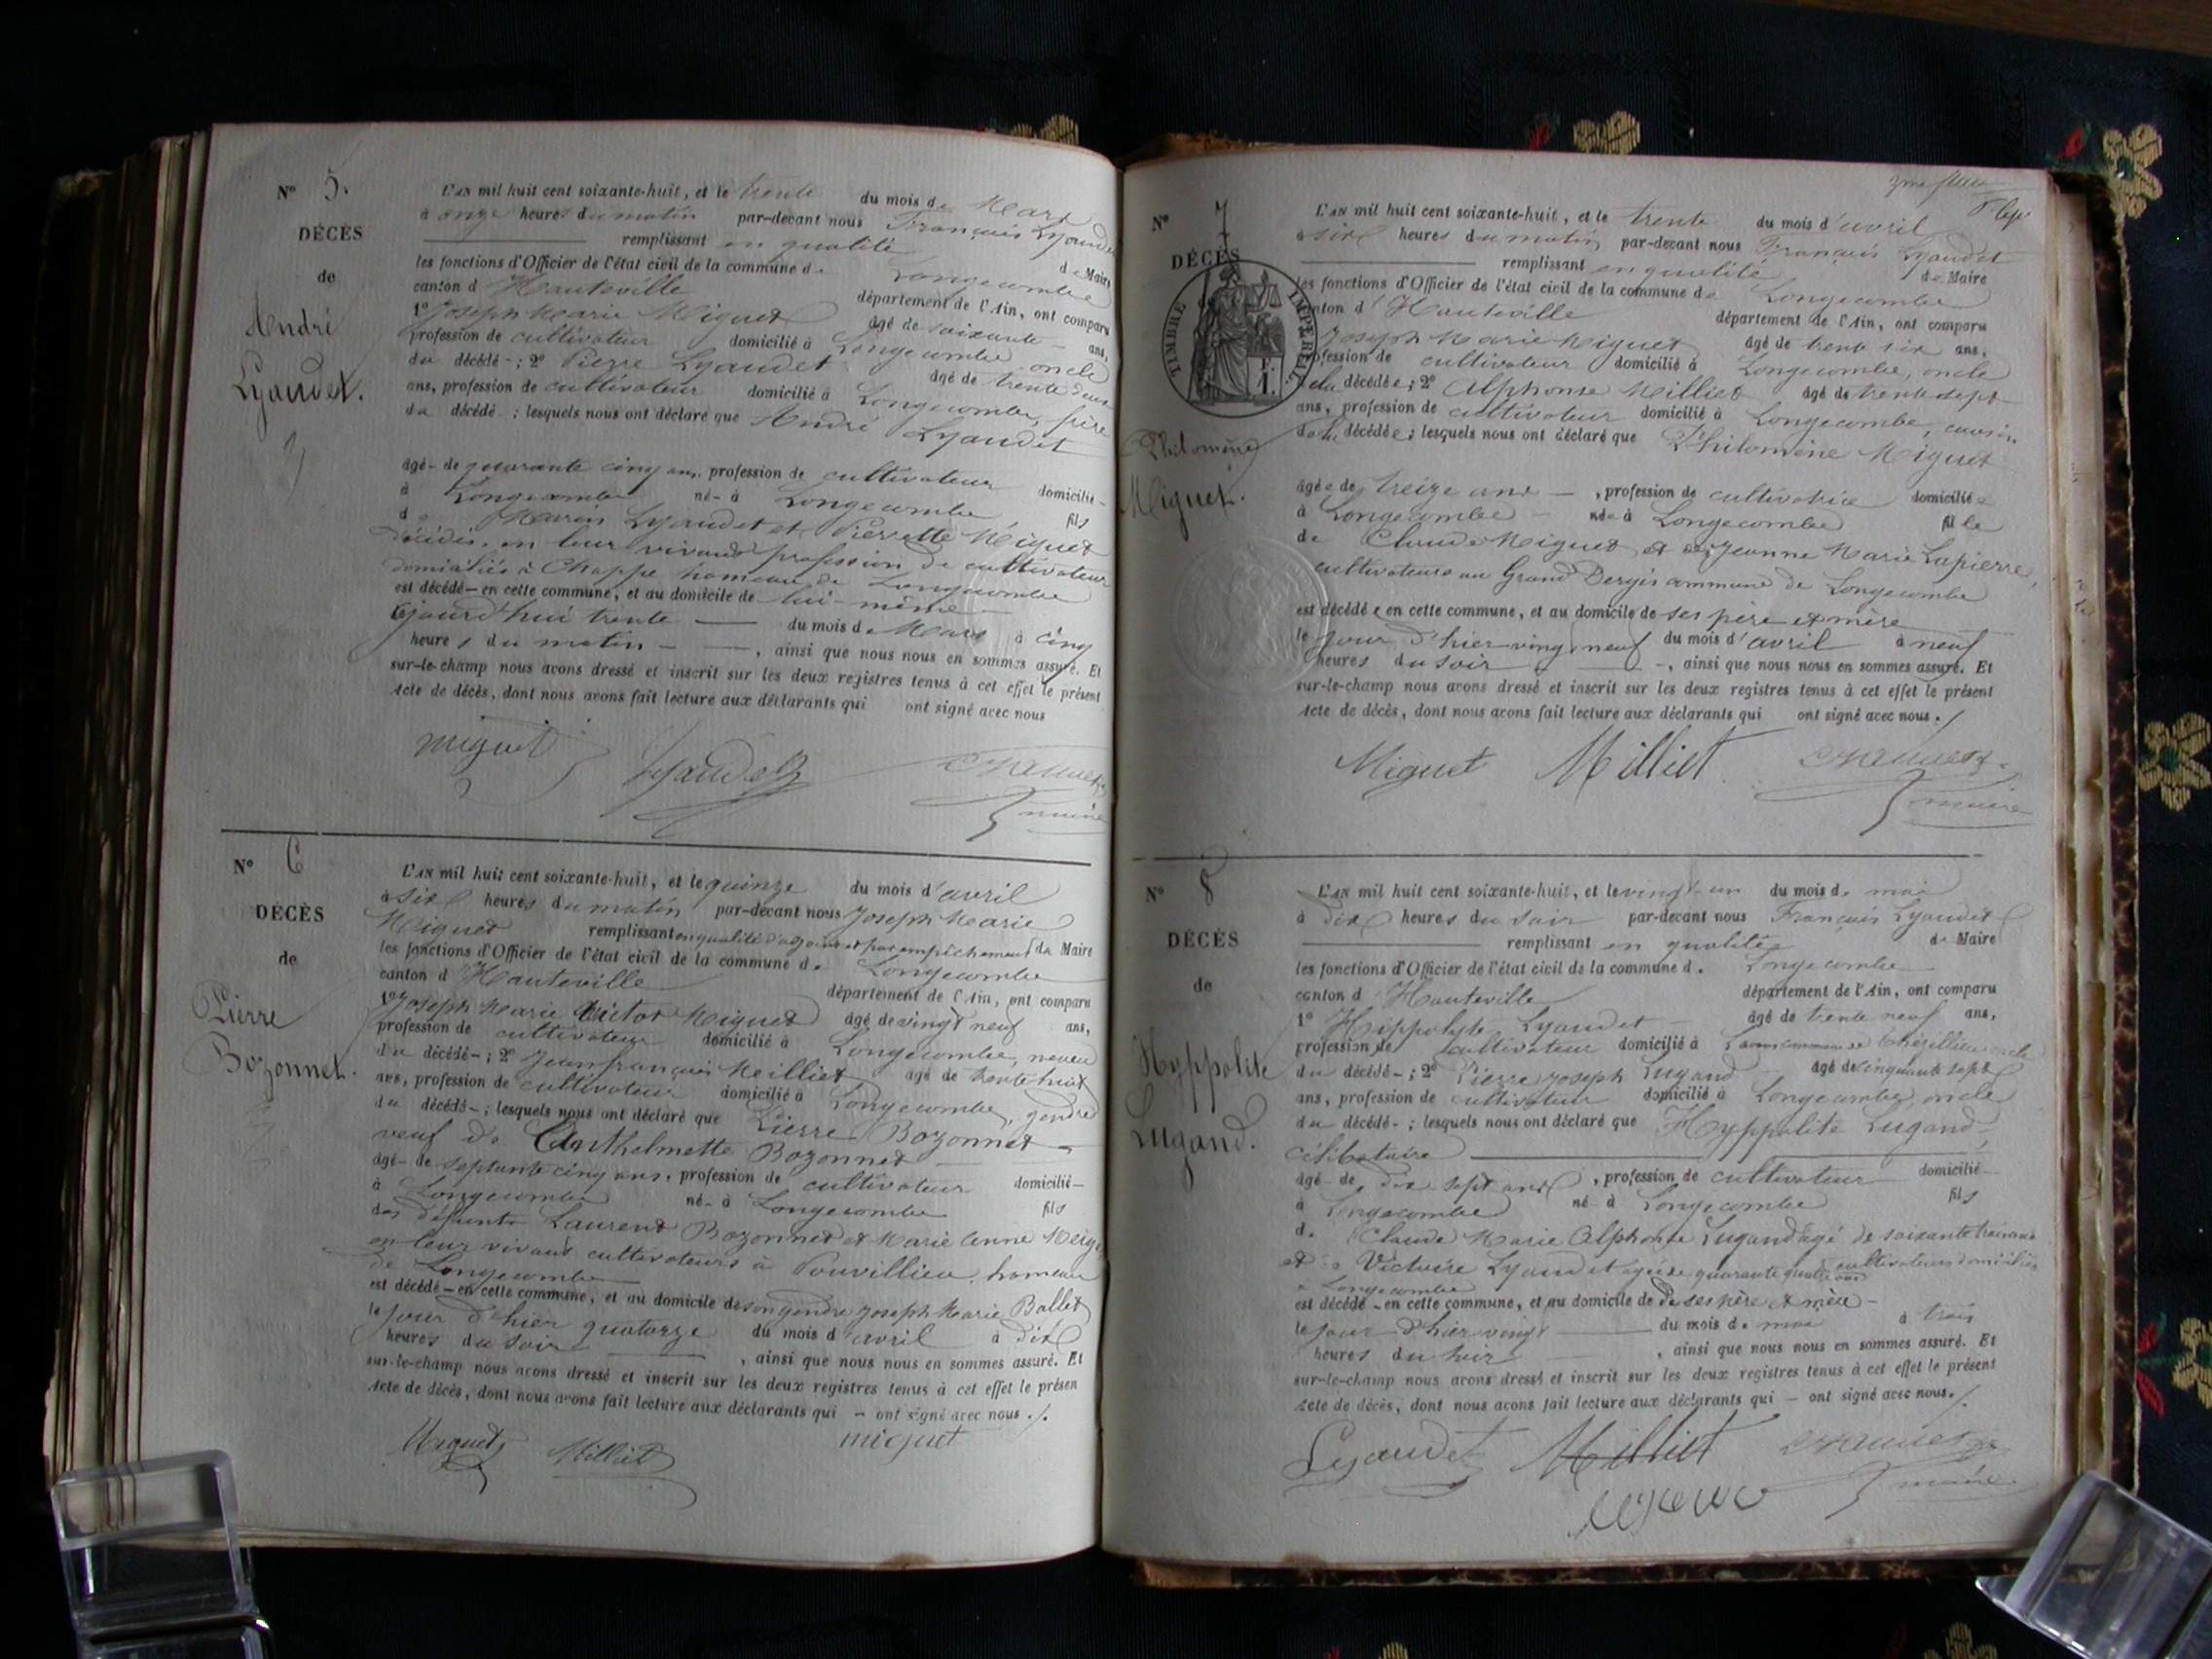 N° 5.
DÉCÈS
de
André
Lyaudet.
L'AN mil huit cent soixante-huit, et le trente du mois de Mars
à onze heures du matin par-devant nous François Lyaudet
remplissant en qualité de Maire
les fonctions d'Officier de l'état civil de la commune de Longecombe
canton d'Hauteville département de l'Ain, ont comparu
1° Joseph Marie Miguet âgé de soixante ans,
profession de cultivateur domicilié à Longecombe oncle
du décédé ; 2° Pierre Lyaudet âgé de trente deux
ans, profession de cultivateur domicilié à Longecombe, frère
du décédé ; lesquels nous ont déclaré que André Lyaudet
âgé de quarante cinq ans, profession de cultivateur domicilié
à Longecombe né à Longecombe fils
de Marin Lyaudet et Pierrette Miguet
décédés, en leur vivant profession de cultivateur
domiciliés à Chappe hameau de Longecombe
est décédé en cette commune, et au domicile de lui-même
cejourd'hui trente du mois de Mars à cinq
heures du matin, ainsi que nous nous en sommes assuré. Et
sur-le-champ nous avons dressé et inscrit sur les deux registres tenus à cet effet le présent
Acte de décès, dont nous avons fait lecture aux déclarants qui ont signé avec nous
miguet Lyaudet maire
N° 6
DÉCÈS
de
Pierre
Bozonnet.
L'AN mil huit cent soixante-huit, et le quinze du mois d'avril
à six heures du matin par-devant nous Joseph Marie
Miguet remplissant en qualité d'adjoint et par empêchement du Maire
les fonctions d'Officier de l'état civil de la commune de Longecombe
canton d'Hauteville département de l'Ain, ont comparu
1° Joseph Marie Victor Miguet âgé de vingt neuf ans,
profession de cultivateur domicilié à Longecombe, neveu
du décédé ; 2° Jean françois Milliet âgé de trente huit
ans, profession de cultivateur domicilié à Longecombe, gendre
du décédé ; lesquels nous ont déclaré que Pierre Bozonnet
veuf de Anthelmette Bozonnet
âgé de septante cinq ans, profession de cultivateur domicilié
à Longecombe né à Longecombe fils
des défunts Laurent Bozonnet et Marie Anne
en leur vivant cultivateurs à Pouvillieu, hameau
de Longecombe
est décédé en cette commune, et au domicile de son gendre Joseph Marie Ballet
le jour d'hier quatorze du mois d'avril à dix
heures du soir, ainsi que nous nous en sommes assuré. Et
sur-le-champ nous avons dressé et inscrit sur les deux registres tenus à cet effet le présen
Acte de décès, dont nous avons fait lecture aux déclarants qui – ont signé avec nous ./.
Miguet Milliet miguet
N° 7
DÉCÈS
TIMBRE IMPÉRIAL
1 F.
Philomène
Miguet.
L'AN mil huit cent soixante-huit, et le trente du mois d'avril
à six heures du matin par-devant nous François Lyaudet
remplissant en qualité de Maire
les fonctions d'Officier de l'état civil de la commune de Longecombe
canton d'Hauteville département de l'Ain, ont comparu
Joseph Marie Miguet âgé de trente six ans,
profession de cultivateur domicilié à Longecombe, oncle
de la décédée ; 2° Alphonse Milliet âgé de trente sept
ans, profession de cultivateur domicilié à Longecombe, cousin
de la décédée ; lesquels nous ont déclaré que Philomène Miguet
âgée de treize ans, profession de cultivatrice domiciliée
à Longecombe née à Longecombe fille
de Claude Miguet et de Jeanne Marie Lapierre,
cultivateurs au Grand Dergis commune de Longecombe
est décédée en cette commune, et au domicile de ses père et mère
le jour d'hier vingt neuf du mois d'avril à neuf
heures du soir, ainsi que nous nous en sommes assuré. Et
sur-le-champ nous avons dressé et inscrit sur les deux registres tenus à cet effet le présent
Acte de décès, dont nous avons fait lecture aux déclarants qui ont signé avec nous ./
Miguet Milliet maire
N° 8
DÉCÈS
de
Hyppolite
Lugand.
L'AN mil huit cent soixante-huit, et le vingt-un du mois de mai
à dix heures du soir par-devant nous François Lyaudet
remplissant en qualité de Maire
les fonctions d'Officier de l'état civil de la commune de Longecombe
canton d'Hauteville département de l'Ain, ont comparu
1° Hippolyte Lyaudet âgé de trente neuf ans,
profession de cultivateur domicilié à commune de Thézillieu oncle
du décédé ; 2° Pierre Joseph Lugand âgé de cinquante sept
ans, profession de cultivateur domicilié à Longecombe, oncle
du décédé ; lesquels nous ont déclaré que Hyppolite Lugand,
célibataire
âgé de dix sept ans, profession de cultivateur domicilié
à Longecombe né à Longecombe fils
de Claude Marie Alphonse Lugand âgé de soixante trois ans
et de Victoire Lyaudet agée de quarante quatre ans cultivateurs domiciliés
à Longecombe
est décédé en cette commune, et au domicile de de ses père et mère
le jour d'hier vingt du mois de mai à trois
heures du soir, ainsi que nous nous en sommes assuré. Et
sur-le-champ nous avons dressé et inscrit sur les deux registres tenus à cet effet le présent
Acte de décès, dont nous avons fait lecture aux déclarants qui – ont signé avec nous. /.
Lyaudet Milliet maire